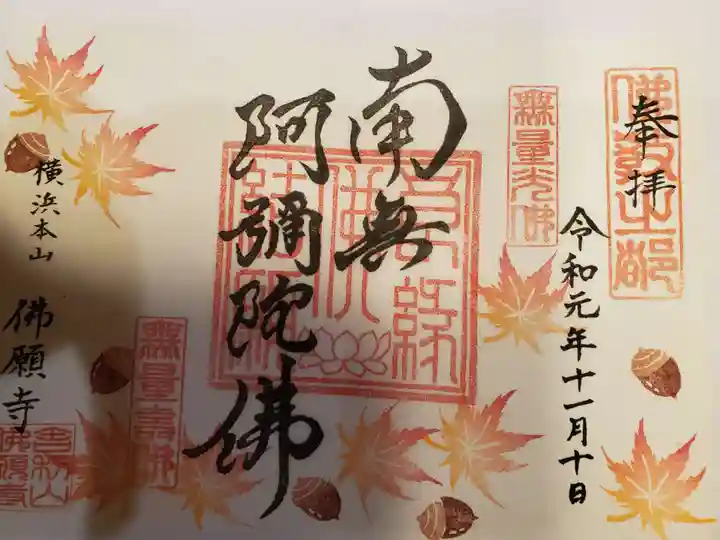 奉拝
令和元年十一月十日
無量光佛
南無
阿彌陀佛
無量壽佛
横浜本山
佛願寺